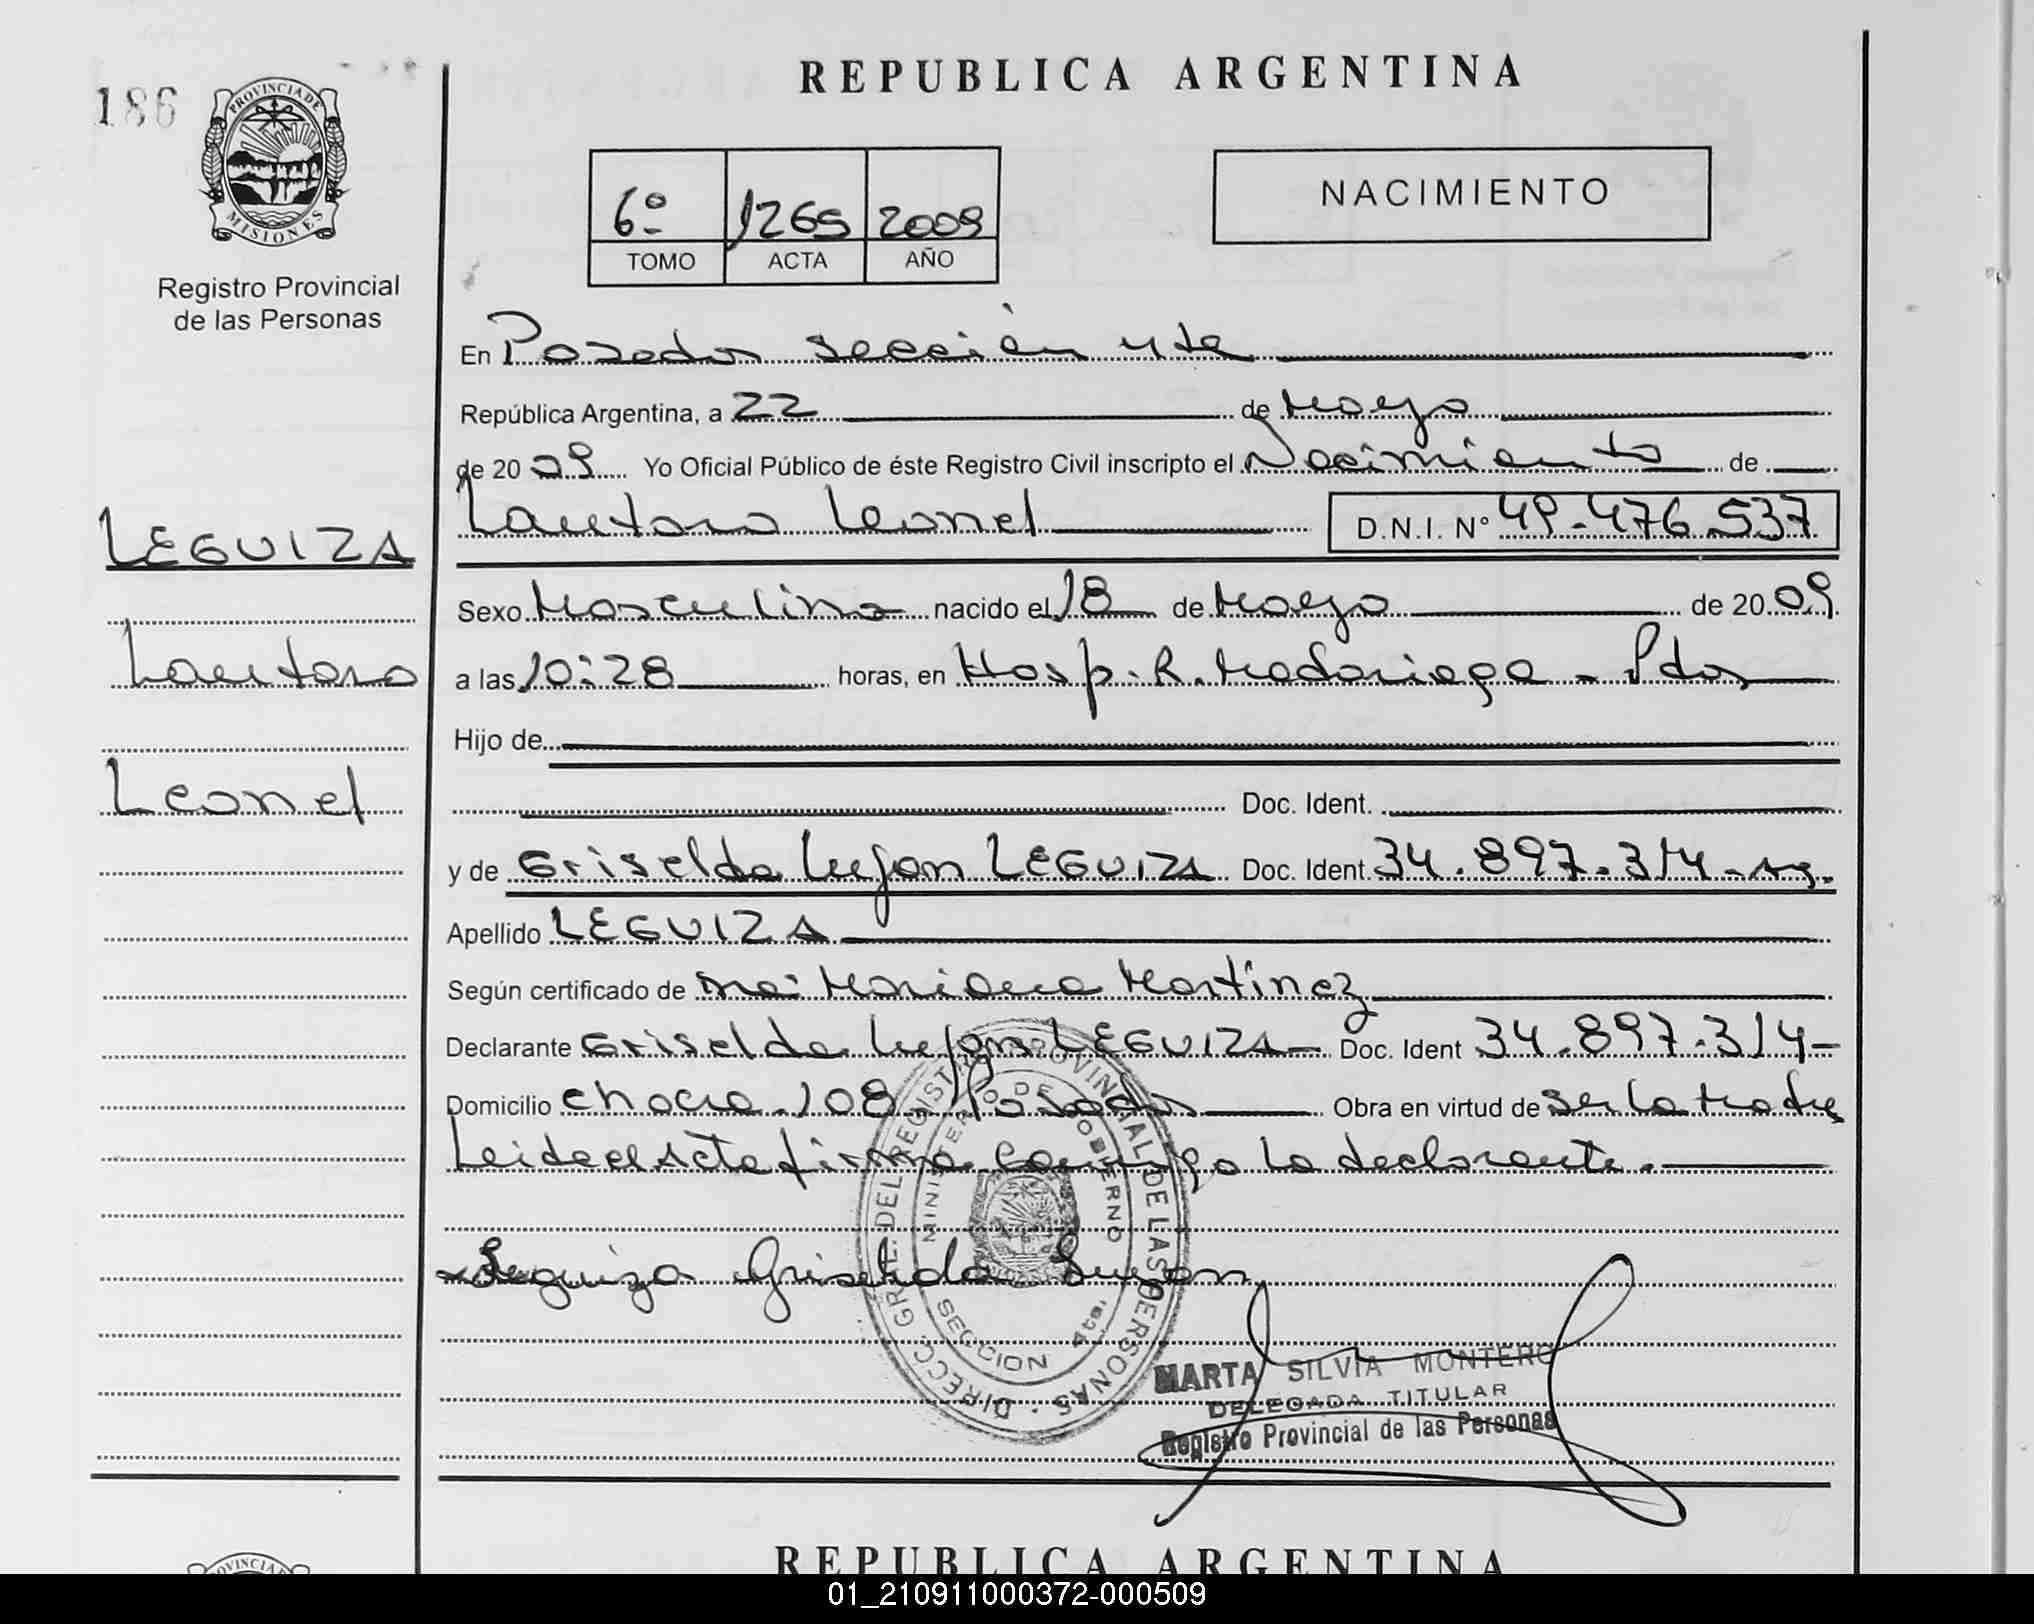 186
PROVINCIA DE
MISIONES
Registro Provincial
de las Personas
REPUBLICA ARGENTINA
6º 1265 2009
TOMO ACTA AÑO
NACIMIENTO
En Posadas sección 4ta
República Argentina, a 22 de Mayo
de 2009 Yo Oficial Público de éste Registro Civil inscripto el Nacimiento de
Lautaro Leonel D.N.I. Nº 49.476.537
LEGUIZA
Lautaro
Leonel
Sexo Masculino nacido el 18 de Mayo de 2009
a las 10:28 horas, en Hosp. R. Madariaga - Pdas
Hijo de
Doc. Ident.
y de Griselda Lujan LEGUIZA Doc. Ident. 34.897.314
Apellido LEGUIZA
Según certificado de Mariana Martínez
Declarante Griselda Lujan LEGUIZA Doc. Ident 34.897.314
Domicilio Chacra 108 Posadas Obra en virtud de ser la madre
Leida el Acta firma conmigo la declarante.
Leguiza Griselda Lujan
DIRECC. GRAL. DEL REGISTRO PROVINCIAL DE LAS PERSONAS
MINISTERIO DE GOBIERNO
SECCION 4ta.
MARTA SILVIA MONTERO
DELEGADA TITULAR
Registro Provincial de las Personas
REPUBLICA ARGENTINA
01_210911000372-000509